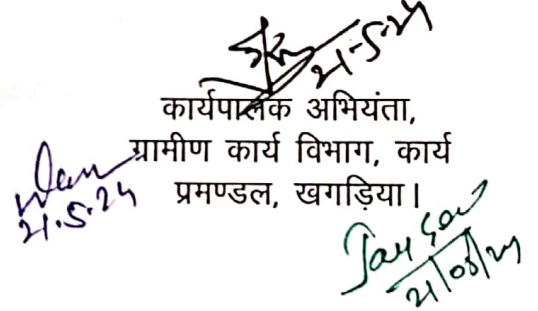 21.5.24
कार्यपालक अभियंता,
ग्रामीण कार्य विभाग, कार्य
प्रमण्डल, खगड़िया।
21.5.24
21/05/24